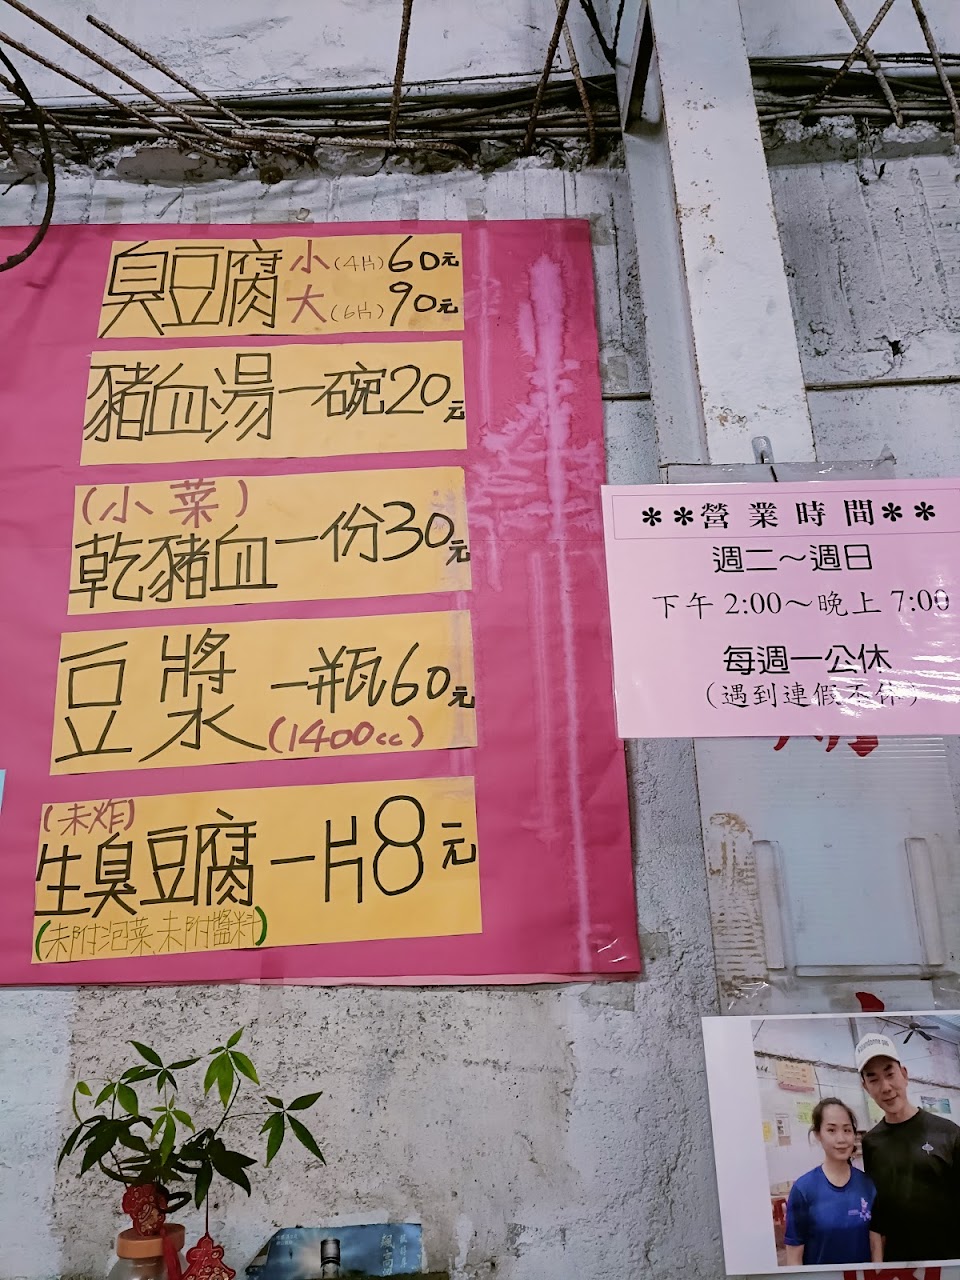 臭豆腐 小(4片)60元
大(6片)90元
豬血湯一碗20元
(小菜)
乾豬血一份30元
豆漿一瓶60元
(1400cc)
(未炸)
生臭豆腐一片8元
(未附泡菜.未附醬料)
**營業時間**
週二～週日
下午 2:00～晚上 7:00
每週一公休
(遇到連假不休)